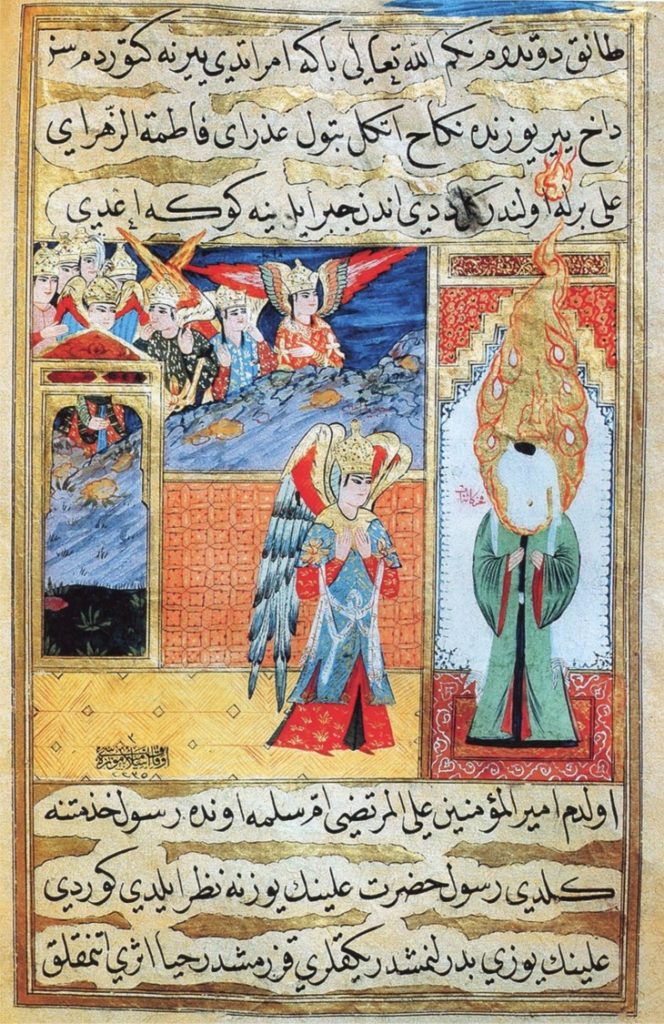 طانق دوتدم نكم الله تعالى باكه امر اتدي يير نه كتوردم سز
داخ يير يوزنده نكاح اتكل بتول عذراي فاطمة الزهراي
على برله اولندر ددي اندن جبرايل ينه كوكه اغدي
فخر كائنات
اوقاف اسلاميه موزه سى
اولدم امير المؤمنين على المرتضى ام سلمه اونده رسول خدمتنه
كلدي رسول حضرت علينك يوزنه نظر ايلدي كوردي
علينك يوزي بدرلنمشدر يكقلري قزرمشدر حيا اثري اتمقلق